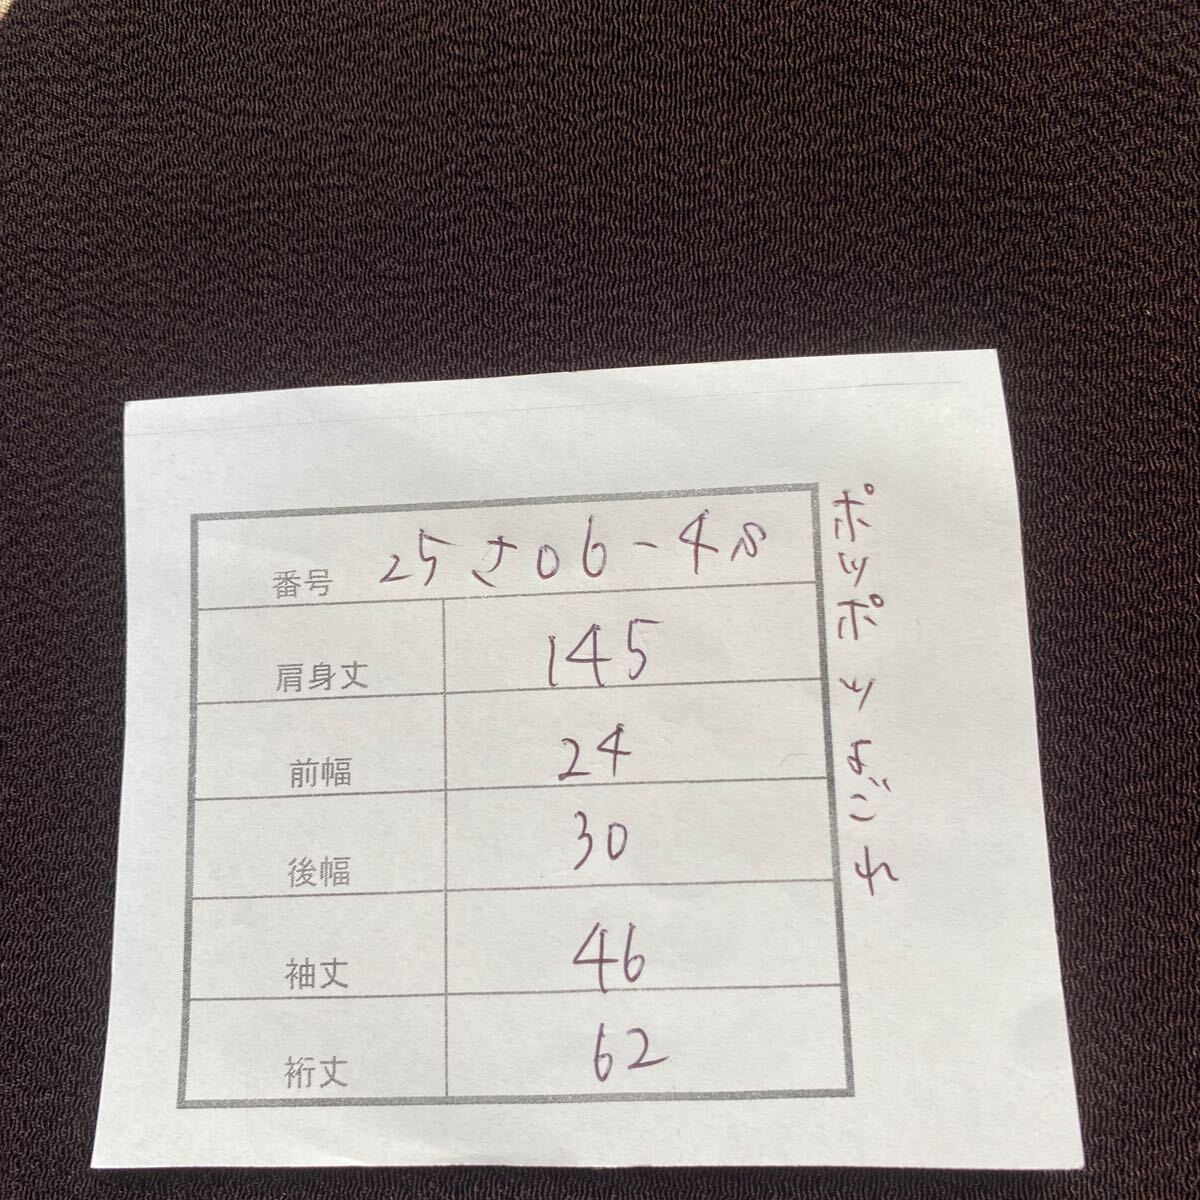 番号 25さ06-48
肩身丈 145
前幅 24
後幅 30
袖丈 46
裄丈 62
ポツポツよごれ